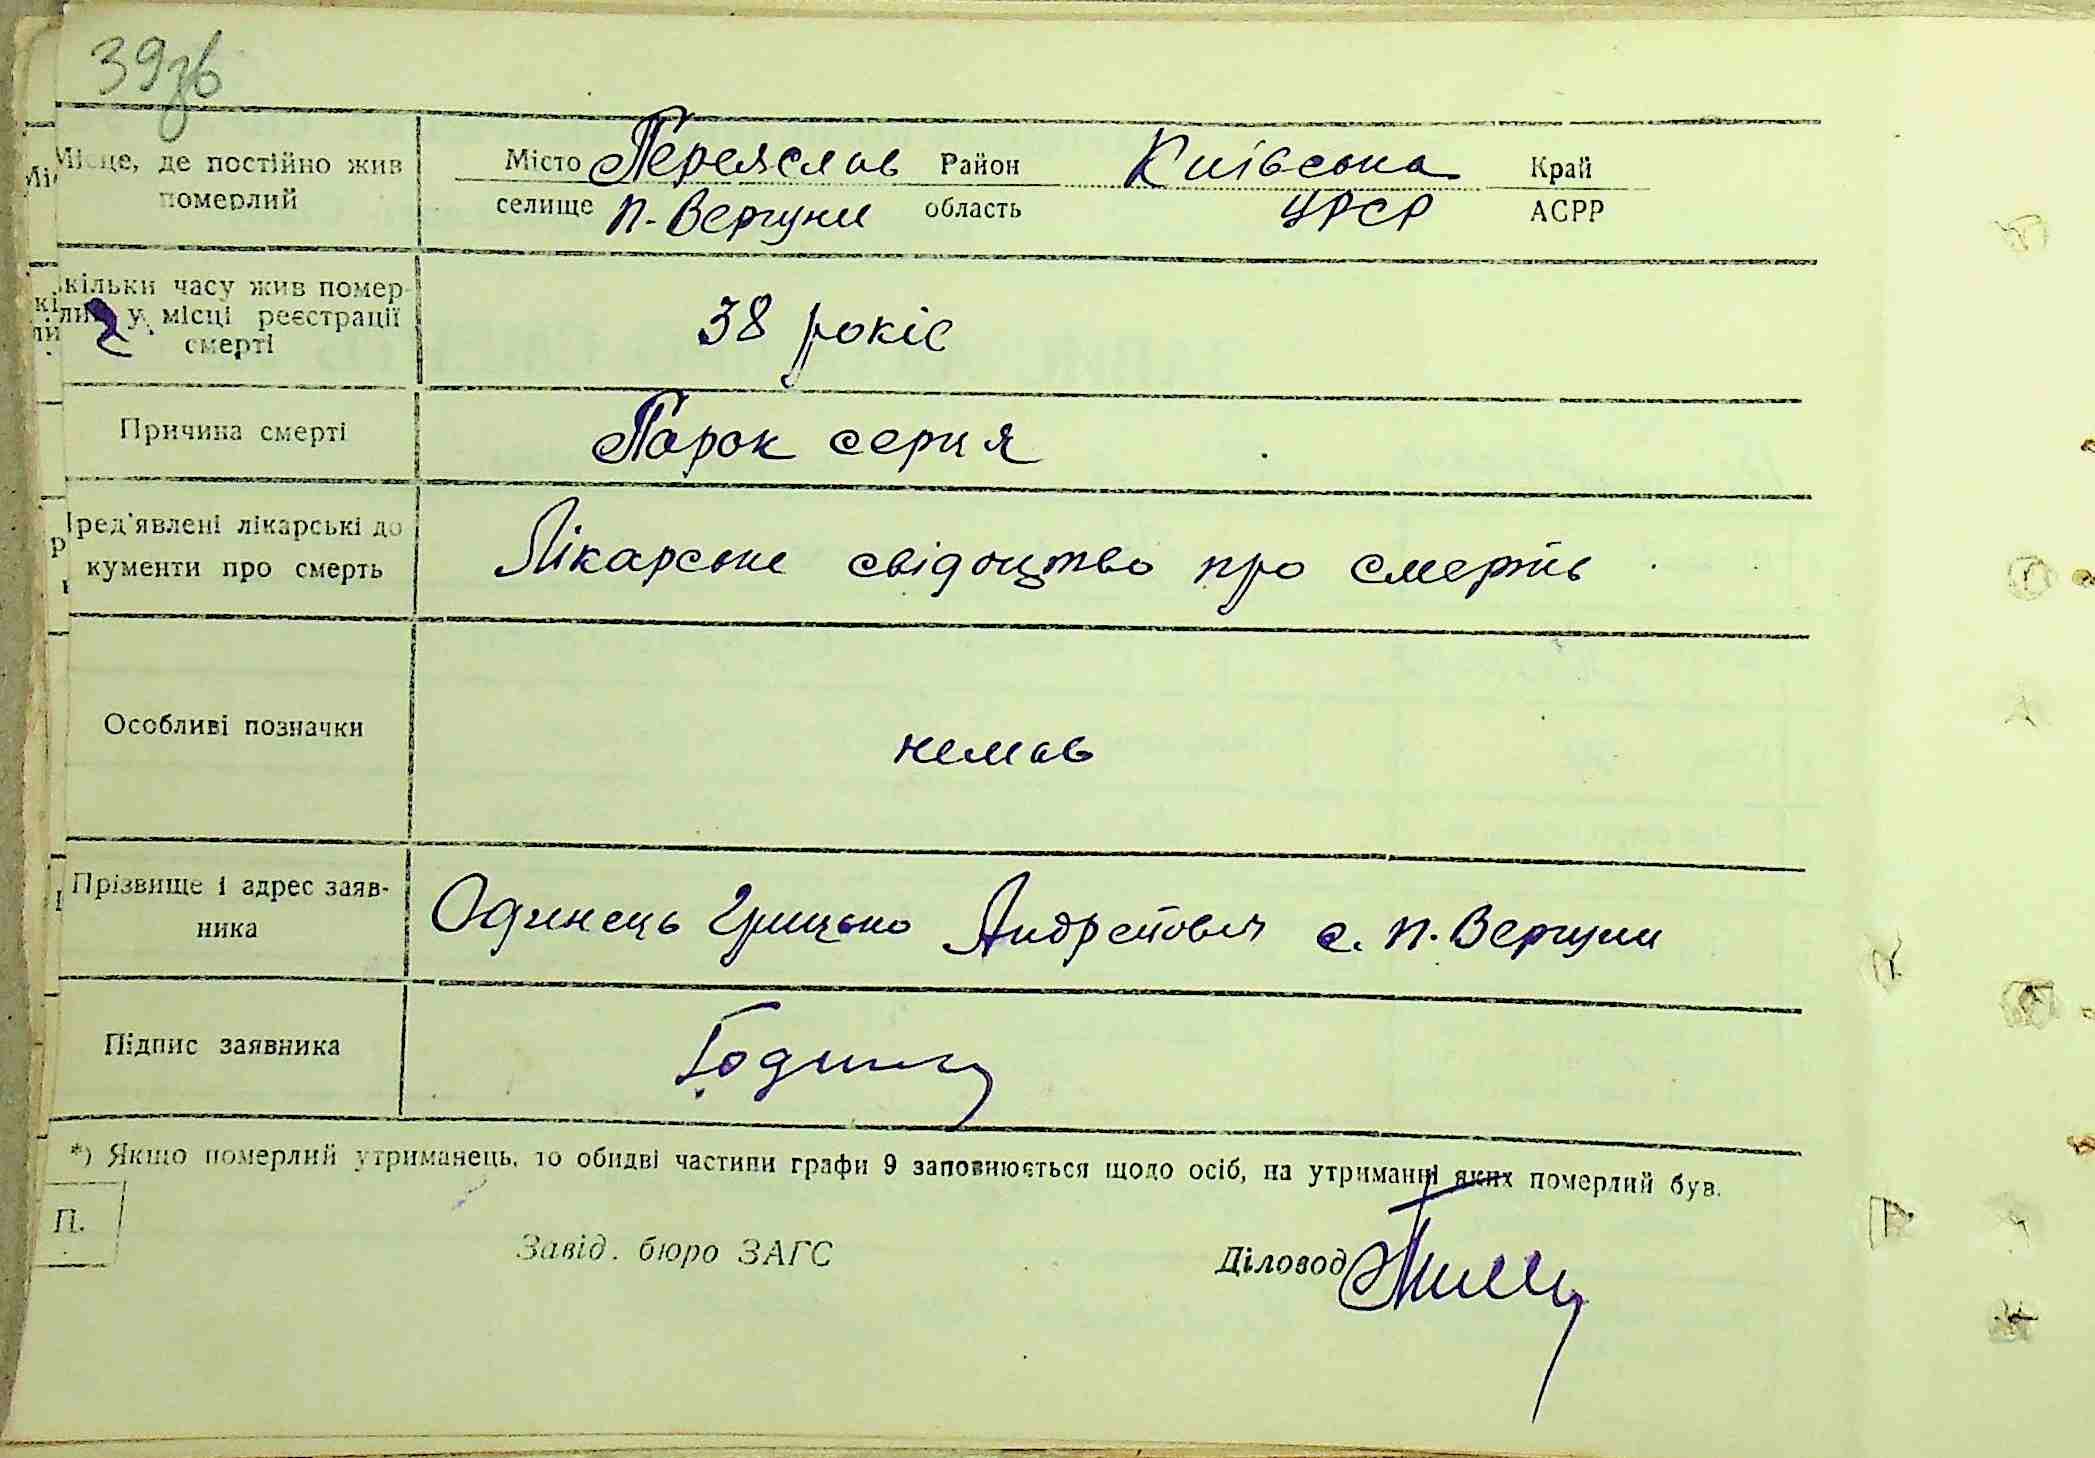 39зв
Місце, де постійно жив
померлий
Місто Переяслав Район Київська Край
селище П-Вергуни область УРСР АСРР
кільки часу жив помер-
лий у місці реєстрації
смерті
38 років
Причина смерті
Порок серця
Пред'явлені лікарські до
кументи про смерть
Лікарське свідоцтво про смерть
Особливі позначки
немав
Прізвище і адрес заяв-
ника
Одинець Грицько Андрейович с. П. Вергуни
Підпис заявника
*) Якщо померлий утриманець, то обидві частини графи 9 заповнюється щодо осіб, на утриманні яких померлий був.
П.
Завід. бюро ЗАГС
Діловод